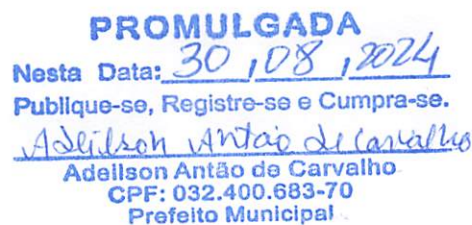 PROMULGADA
Nesta Data: 30 / 08 / 2024
Publique-se, Registre-se e Cumpra-se.
Adeilson Antão de Carvalho
Adeilson Antão de Carvalho
CPF: 032.400.683-70
Prefeito Municipal